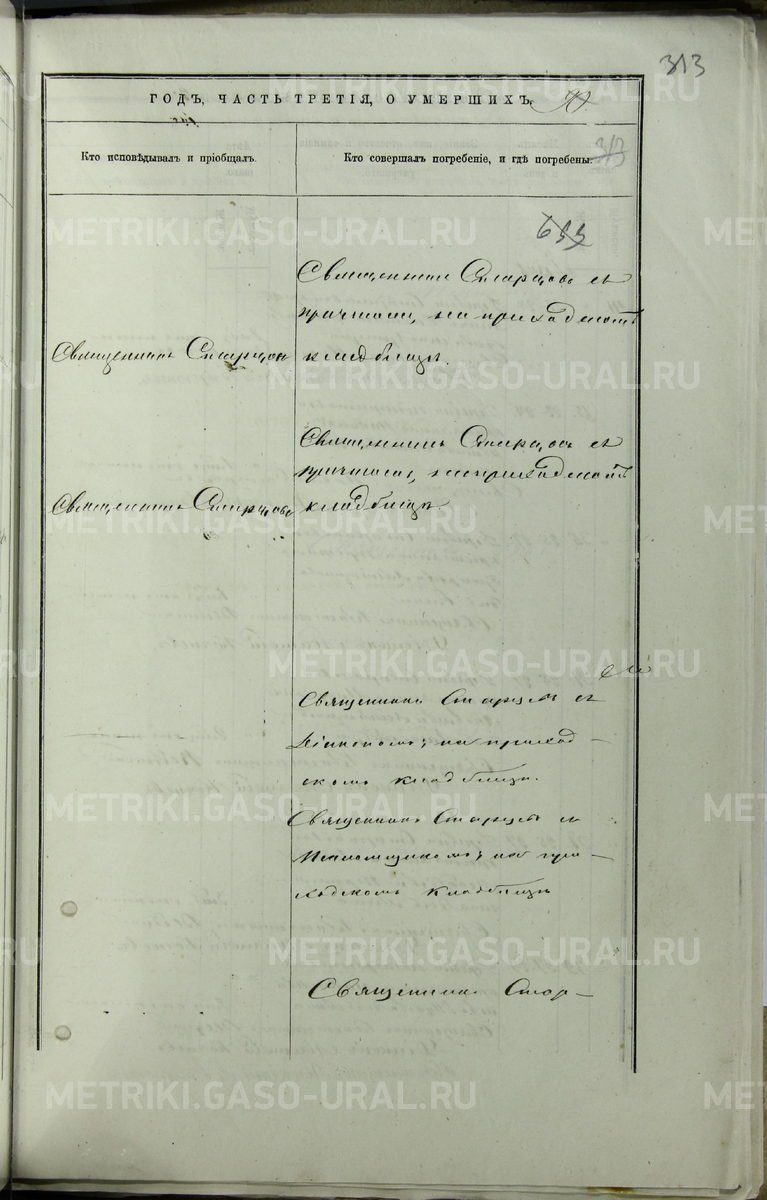 313
ГОДЪ, ЧАСТЬ ТРЕТІЯ, О УМЕРШИХЪ.
Кто исповѣдывалъ и пріобщалъ.
Кто совершалъ погребеніе, и гдѣ погребены.
313
633
Священникъ Старцовъ съ
причтомъ, на приходскомъ
Священникъ Старцовъ
кладбищѣ.
Священникъ Старцовъ съ
причтомъ, на приходскомъ
Священникъ Старцовъ
кладбищѣ.
Священникъ Старцевъ съ
діакономъ; на приход-
скомъ кладбищѣ.
Священникъ Старцевъ съ
Псаломщикомъ; на при-
ходскомъ кладбищѣ
Священникъ Стар-
METRIKI.GASO-URAL.RU